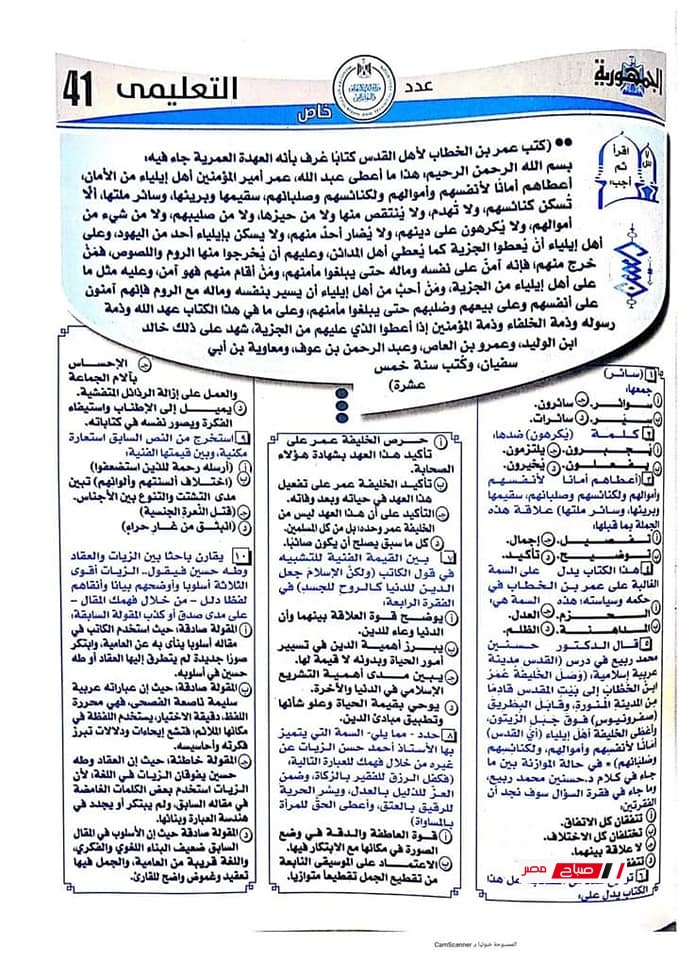 الجمهورية
عدد
خاص
التعليمى
41
اقرأ
ثم
أجب:
●● (كتب عمر بن الخطاب لأهل القدس كتابًا عُرف بأنه العهدة العمرية جاء فيه:
بسم الله الرحمن الرحيم، هذا ما أعطى عبد الله، عمر أمير المؤمنين أهل إيلياء من الأمان،
أعطاهم أمانًا لأنفسهم وأموالهم ولكنائسهم وصلبانهم، سقيمها وبريئها، وسائر ملتها، ألّا
تُسكن كنائسهم، ولا تُهدم، ولا يُنتقص منها ولا من حيزها، ولا من صليبهم، ولا من شيء من
أموالهم، ولا يُكرهون على دينهم، ولا يُضار أحدٌ منهم، ولا يسكن بإيلياء أحد من اليهود، وعلى
أهل إيلياء أن يُعطوا الجزية كما يُعطي أهل المدائن، وعليهم أن يُخرجوا منها الروم واللصوص، فمَنْ
خرج منهم، فإنه آمنٌ على نفسه وماله حتى يبلغوا مأمنهم، ومَنْ أقام منهم فهو آمن، وعليه مثل ما
على أهل إيلياء من الجزية، ومَنْ أحبَّ من أهل إيلياء أن يسير بنفسه وماله مع الروم فإنهم آمنون
على أنفسهم وعلى بيعهم وصلبهم حتى يبلغوا مأمنهم، وعلى ما في هذا الكتاب عهد الله وذمة
رسوله وذمة الخلفاء وذمة المؤمنين إذا أعطوا الذي عليهم من الجزية، شهد على ذلك خالد
ابن الوليد، وعمرو بن العاص، وعبد الرحمن بن عوف، ومعاوية بن أبي
سفيان، وكُتب سنة خمس
عشرة)
١ (سائر)
جمعها:
أ سوائر. ج سائرون.
ب سيَر. د سائرات.
٢ كلمة (يُكرهون) ضدها:
أ يُجبرون. ج يلتزمون.
ب يفعلون. د يُخيرون.
٣ (أعطاهم أمانًا لأنفسهم
وأموالهم ولكنائسهم وصلبانهم، سقيمها
وبريئها، وسائر ملتها) علاقة هذه
الجملة بما قبلها:
أ تفصيل. ج إجمال.
ب توضيح. د تأكيد.
٤ هذا الكتاب يدل على السمة
الغالبة على عمر بن الخطاب في
حكمه وسياسته؛ هذه السمة هي:
أ الحزم. ج العدل.
ب المداهنة. د الظلم.
٥ قال الدكتور حسنين
محمد ربيع في درس (القدس مدينة
عربية إسلامية)، (وَصَل الخليفة عُمَرُ
ابنُ الخطَّاب إلى بَيْتِ المَقْدس قادِمًا
من المدينة المُنورة، وقابل البطريق
(سفرونيوس) فوق جَبَل الزيتون،
وأعْطَى الخليفة أهْل إيلياء (أي القدس)
أمَانًا لأنْفسهم وأموالهم، ولكنائسهم
وصُلبانهم) • في حالة الموازنة بين ما
جاء في كلام د.حسنين محمد ربيع،
وما جاء في فقرة السؤال سوف نجد أن
الفقرتين:
أ تتفقان كل الاتفاق.
ب تختلفان كل الاختلاف.
ج لا علاقة بينهما.
الكتاب يدل على:
أ حرص الخليفة عمر على
تأكيد هذا العهد بشهادة هؤلاء
الصحابة.
ب تأكيد الخليفة عمر على تفعيل
هذا العهد في حياته وبعد وفاته.
ج التأكيد على أن هذا العهد ليس من
الخليفة عمر وحده؛ بل من كل المسلمين.
د كل ما سبق يصلح أن يكون صائبًا.
٧ بين القيمة الفنية للتشبيه
في قول الكاتب (ولكنَّ الإسلامَ جعل
الدين للدنيا كـالـروح للجسد) في
الفقرة الرابعة،
أ يوضح قوة العلاقة بينهما وأن
الدنيا وعاء للدين.
ب يبرز أهمية الدين في تسيير
أمور الحياة وبدونه لا قيمة لها.
ج يبين مدى أهمية التشريع
الإسلامي في الدنيا والآخرة.
د يوحي بقيمة الحياة وعلو شأنها
وتطبيق مبادئ الدين.
٨ حدد - مما يلي- السمة التي يتميز
بها الأستاذ أحمد حسن الزيات عن
غيره من خلال فهمك للعبارة التالية،
(فكفل الرزق للفقير بالزكاة، وضمن
العز للذليل بالعدل، ويسّر الحرية
للرقيق بالعتق، وأعطى الحقّ للمرأة
بالمساواة)
أ قوة العاطفة والدقة في وضع
الصورة في مكانها مع الابتكار فيها.
ب الاعتماد على الموسيقى النابعة
من تقطيع الجمل تقطيعًا متوازيا.
ج الإحساس
بآلام الجماعة
والعمل على إزالة الرذائل المتفشية.
د يميل إلى الإطناب واستيفاء
الفكرة ويصور نفسه في كتاباته.
٩ استخرج من النص السابق استعارة
مكنية، وبين قيمتها الفنية:
أ (أرسله رحمة للذين استضعفوا)
ب (اختلاف ألسنتهم وألوانهم) تبين
مدى التشتت والتنوع بين الأجناس.
ج (قتل النُّعرة الجنسية)
د (انبثق من غارِ حراءِ)
١٠ يقارن باحثا بين الزيات والعقاد
وطه حسين فيقول.. الزيات أقوى
الثلاثة أسلوبا وأوضحهم بيانا وأنقاهم
لفظا دلل - من خلال فهمك المقال -
على مدى صدق أو كذب المقولة السابقة:
أ المقولة صادقة، حيث استخدم الكاتب في
مقاله أسلوبا ينأى به عن العامية، وابتكر
صورًا جديدة لم يتطرق إليها العقاد أو طه
حسين في أسلوبه.
ب المقولة صادقة؛ حيث إن عباراته عربية
سليمة ناصعة الفصحى، فهي محررة
اللفظ، دقيقة الاختيار، يستخدم اللفظة في
مكانها الملائم، فتشع إيحاءات ودلالات تبرز
فكرته وأحاسيسه.
ج المقولة خاطئة؛ حيث إن العقاد وطه
حسين يفوقان الزيات في اللغة، لأن
الزيات استخدم بعض الكلمات الغامضة
في مقاله السابق، ولم يبتكر أو يجدد في
هندسة العبارة وبنائها.
د المقولة صادقة حيث إن الأسلوب في المقال
السابق ضعيف البناء اللغوي والفكري،
واللغة قريبة من العامية، والجمل فيها
تعقيد وغموض واضح للقارئ.
صباح مصر
الممسوحة ضوئيا بـ CamScanner